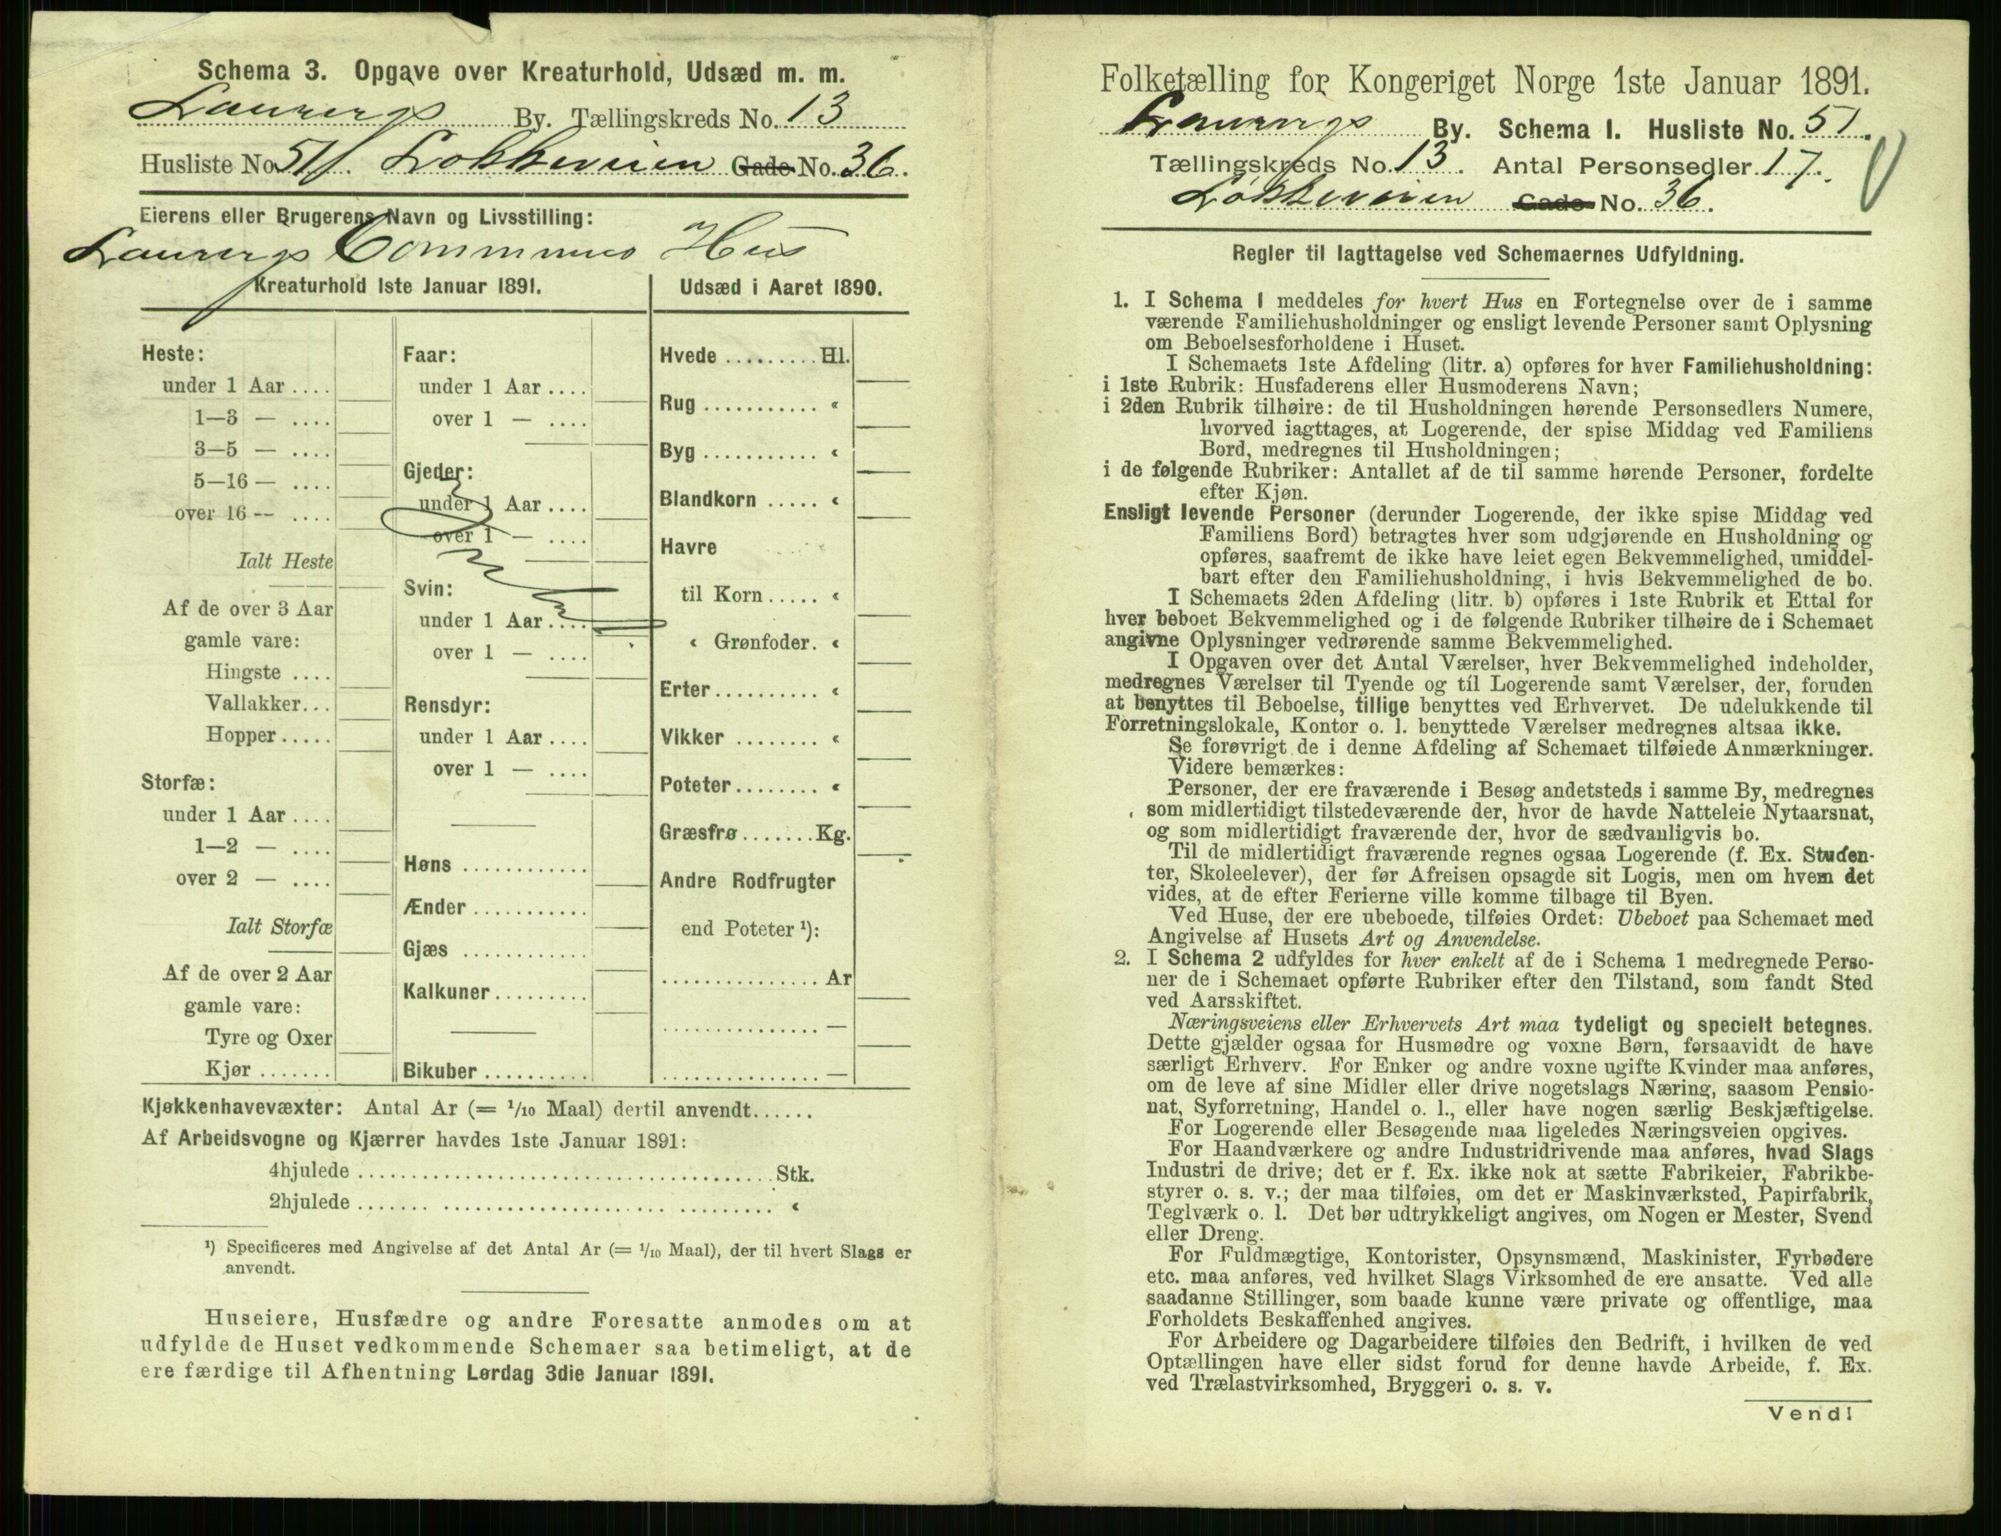 Schema 3. Opgave over Kreaturhold, Udsæd m. m.
Laurvigs By. Tællingskreds No. 13
Husliste No. 51. Løkkeveien Gade No. 36.
Eierens eller Brugerens Navn og Livsstilling:
Laurvigs Communes Hus
Kreaturhold 1ste Januar 1891.
Heste:
under 1 Aar ....
1—3 — ....
3—5 — ....
5—16 — ....
over 16 — ....
Ialt Heste
Af de over 3 Aar
gamle vare:
Hingste ....
Vallakker...
Hopper.....
Storfæ:
under 1 Aar ....
1—2 — ....
over 2 — ....
Ialt Storfæ
Af de over 2 Aar
gamle vare:
Tyre og Oxer
Kjør .......
Faar:
under 1 Aar ....
over 1 — ....
Gjeder:
under 1 Aar ....
over 1 — ....
Svin:
under 1 Aar ....
over 1 — ....
Rensdyr:
under 1 Aar ....
over 1 — ....
Høns ............
Ænder ...........
Gjæs ............
Kalkuner.........
Bikuber ..........
Udsæd i Aaret 1890.
Hvede .........Hl.
Rug ........... «
Byg ........... «
Blandkorn ..... «
Havre
til Korn ..... «
« Grønfoder. «
Erter.......... «
Vikker ........ «
Poteter........ «
Græsfrø.......Kg.
Andre Rodfrugter
end Poteter ¹):
............... Ar
............... —
............... —
Kjøkkenhavevæxter: Antal Ar (= 1/10 Maal) dertil anvendt......
Af Arbeidsvogne og Kjærrer havdes 1ste Januar 1891:
4hjulede ........................................Stk.
2hjulede ....... ...................... ......... «
¹) Specificeres med Angivelse af det Antal Ar (= 1/10 Maal), der til hvert Slags er
anvendt.
Huseiere, Husfædre og andre Foresatte anmodes om at
udfylde de Huset vedkommende Schemaer saa betimeligt, at de
ere færdige til Afhentning Lørdag 3die Januar 1891.
Folketælling for Kongeriget Norge 1ste Januar 1891.
Laurvigs By. Schema 1. Husliste No. 51.
Tællingskreds No. 13. Antal Personsedler 17.
Løkkeveien Gade No. 36.
Regler til Iagttagelse ved Schemaernes Udfyldning.
1. I Schema 1 meddeles for hvert Hus en Fortegnelse over de i samme
værende Familiehusholdninger og ensligt levende Personer samt Oplysning
om Beboelsesforholdene i Huset.
I Schemaets 1ste Afdeling (litr. a) opføres for hver Familiehusholdning:
i 1ste Rubrik: Husfaderens eller Husmoderens Navn;
i 2den Rubrik tilhøire: de til Husholdningen hørende Personsedlers Numere,
hvorved iagttages, at Logerende, der spise Middag ved Familiens
Bord, medregnes til Husholdningen;
i de følgende Rubriker: Antallet af de til samme hørende Personer, fordelte
efter Kjøn.
Ensligt levende Personer (derunder Logerende, der ikke spise Middag ved
Familiens Bord) betragtes hver som udgjørende en Husholdning og
opføres, saafremt de ikke have leiet egen Bekvemmelighed, umiddel-
bart efter den Familiehusholdning, i hvis Bekvemmelighed de bo.
I Schemaets 2den Afdeling (litr. b) opføres i 1ste Rubrik et Ettal for
hver beboet Bekvemmelighed og i de følgende Rubriker tilhøire de i Schemaet
angivne Oplysninger vedrørende samme Bekvemmelighed.
I Opgaven over det Antal Værelser, hver Bekvemmelighed indeholder,
medregnes Værelser til Tyende og til Logerende samt Værelser, der, foruden
at benyttes til Beboelse, tillige benyttes ved Erhvervet. De udelukkende til
Forretningslokale, Kontor o. l. benyttede Værelser medregnes altsaa ikke.
Se forøvrigt de i denne Afdeling af Schemaet tilføiede Anmærkninger.
Videre bemærkes:
Personer, der ere fraværende i Besøg andetsteds i samme By, medregnes
som midlertidigt tilstedeværende der, hvor de havde Natteleie Nytaarsnat,
og som midlertidigt fraværende der, hvor de sædvanligvis bo.
Til de midlertidigt fraværende regnes ogsaa Logerende (f. Ex. Studen-
ter, Skoleelever), der før Afreisen opsagde sit Logis, men om hvem det
vides, at de efter Ferierne ville komme tilbage til Byen.
Ved Huse, der ere ubeboede, tilføies Ordet: Ubeboet paa Schemaet med
Angivelse af Husets Art og Anvendelse.
2. I Schema 2 udfyldes for hver enkelt af de i Schema 1 medregnede Perso-
ner de i Schemaet opførte Rubriker efter den Tilstand, som fandt Sted
ved Aarsskiftet.
Næringsveiens eller Erhvervets Art maa tydeligt og specielt betegnes.
Dette gjælder ogsaa for Husmødre og voxne Børn, forsaavidt de have
særligt Erhverv. For Enker og andre voxne ugifte Kvinder maa anføres,
om de leve af sine Midler eller drive nogetslags Næring, saasom Pensio-
nat, Syforretning, Handel o. l., eller have nogen særlig Beskjæftigelse.
For Logerende eller Besøgende maa ligeledes Næringsveien opgives.
For Haandværkere og andre Industridrivende maa anføres, hvad Slags
Industri de drive; det er f. Ex. ikke nok at sætte Fabrikeier, Fabrikbe-
styrer o. s. v.; der maa tilføies, om det er Maskinværksted, Papirfabrik,
Teglværk o. l. Det bør udtrykkeligt angives, om Nogen er Mester, Svend
eller Dreng.
For Fuldmægtige, Kontorister, Opsynsmænd, Maskinister, Fyrbødere
etc. maa anføres, ved hvilket Slags Virksomhed de ere ansatte. Ved alle
saadanne Stillinger, som baade kunne være private og offentlige, maa
Forholdets Beskaffenhed angives.
For Arbeidere og Dagarbeidere tilføies den Bedrift, i hvilken de ved
Optællingen have eller sidst forud for denne havde Arbeide, f. Ex.
ved Trælastvirksomhed, Bryggeri o. s. v.
Vend!